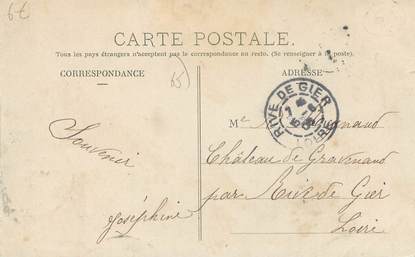 6€
CARTE POSTALE.
Tous les pays étrangers n'acceptent pas la correspondance au recto. (Se renseigner à la poste).
CORRESPONDANCE
ADRESSE
RIVE DE GIER
LOIRE
M
Château de Gravenand
par Rive de Gier
Loire
Souvenir
Joséphine